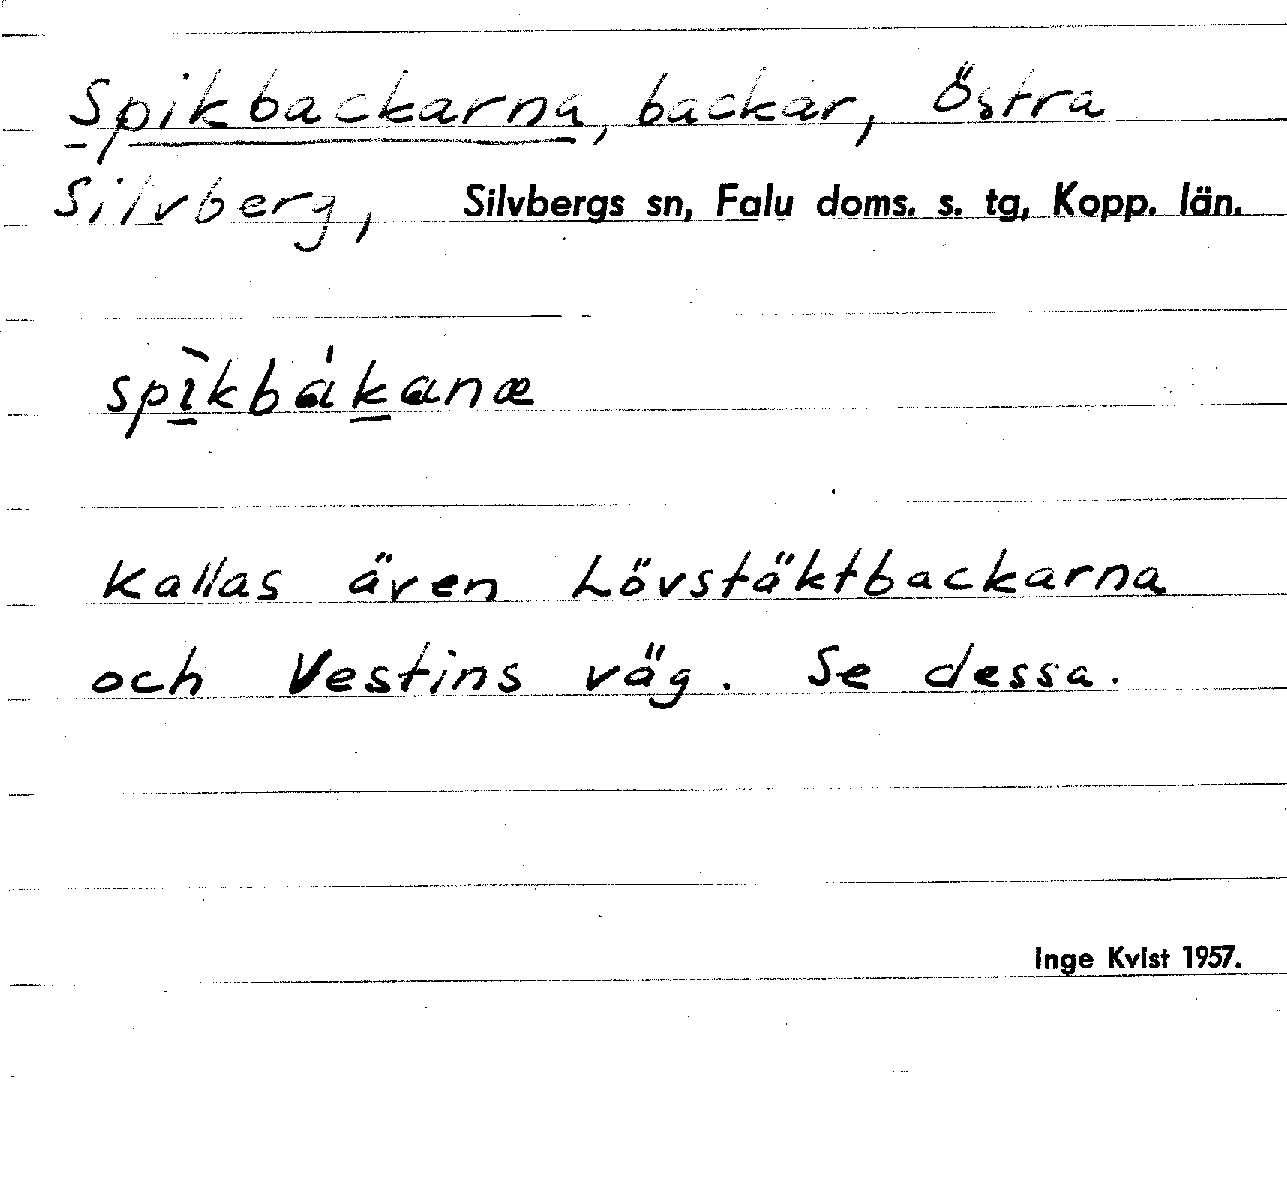 Spikbackarna, backar, Östra
Silvberg, Silvbergs sn, Falu doms. s. tg, Kopp. län.
spì̠kbák̠anæ
Kallas även Lövstäktbackarna
och Vestins väg. Se dessa.
Inge Kvist 1957.